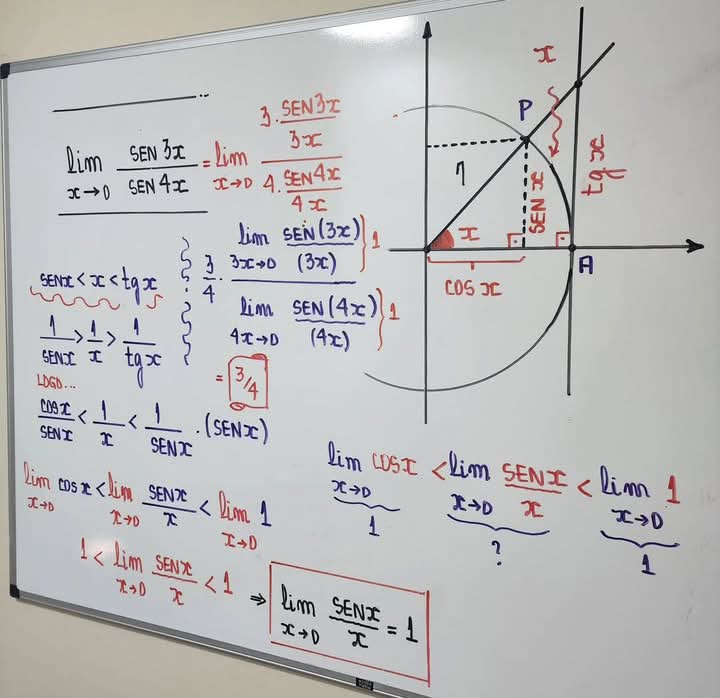 lim x→0 SEN 3x / SEN 4x = lim x→0 (3 · SEN 3x / 3x) / (4 · SEN 4x / 4x)
3/4 · (lim 3x→0 SEN(3x) / (3x)) } 1 / (lim 4x→0 SEN(4x) / (4x)) } 1
= 3/4
SENx < x < tgx
1/SENx > 1/x > 1/tgx
LOGO...
COSx/SENx < 1/x < 1/SENx · (SENx)
lim x→0 COSx < lim x→0 SENx/x < lim x→0 1
1 < lim x→0 SENx/x < 1 ⇒ lim x→0 SENx/x = 1
x
P
1
SEN x
tg x
x
A
COS x
lim x→0 COSx < lim x→0 SENx/x < lim x→0 1
1 ? 1